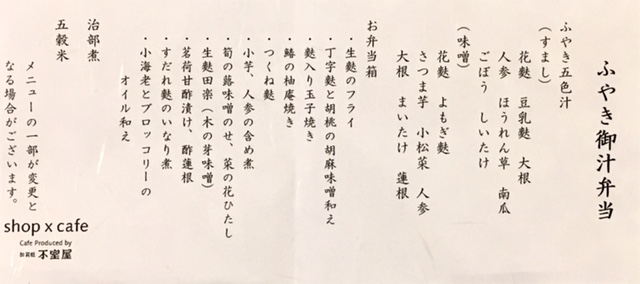 ふやき御汁弁当
ふやき五色汁
(すまし)
花麩 豆乳麩 大根
人参 ほうれん草 南瓜
ごぼう しいたけ
(味噌)
花麩 よもぎ麩
さつま芋 小松菜 人参
大根 まいたけ 蓮根
お弁当箱
・生麩のフライ
・丁字麩と胡桃の胡麻味噌和え
・麩入り玉子焼き
・鰆の柚庵焼き
・つくね麩
・小芋、人参の含め煮
・筍の蕗味噌のせ、菜の花ひたし
・生麩田楽(木の芽味噌)
・茗荷甘酢漬け、酢蓮根
・すだれ麩のいなり煮
・小海老とブロッコリーの
オイル和え
治部煮
五穀米
メニューの一部が変更と
なる場合がございます。
shop x cafe
Cafe Produced by
加賀麩 不室屋